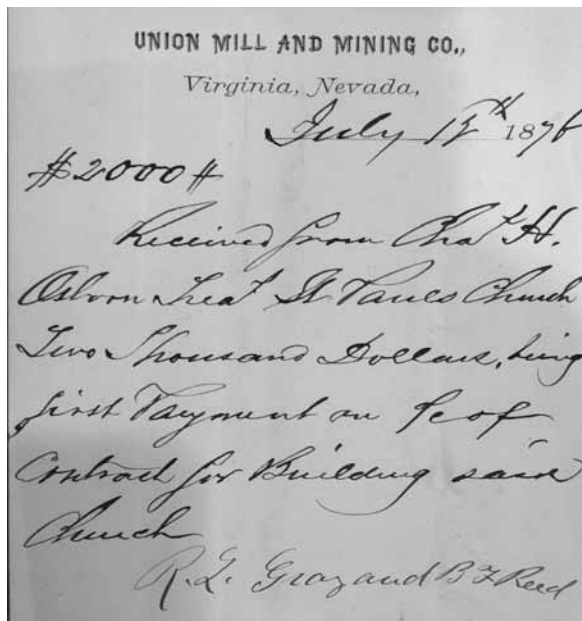 UNION MILL AND MINING CO.,
Virginia, Nevada,
July 1876
$2000
Received from Chas H.
Osborn Treas St Pauls Church
Two Thousand Dollars, being
first Payment on of
Contract for Building said
Church
R. L. Gray and B F Reed